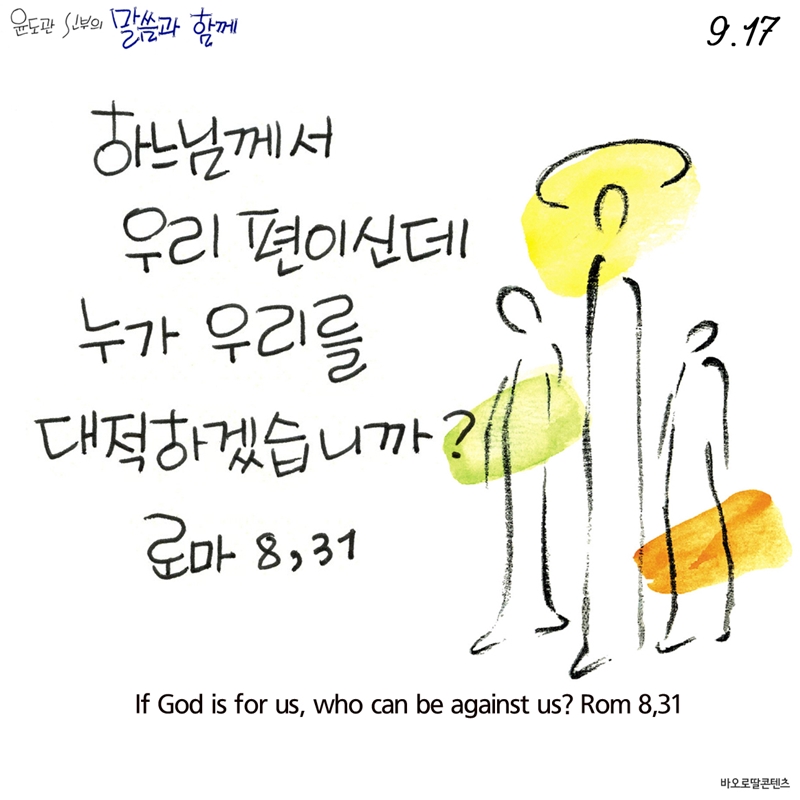 윤도관 신부의 말씀과 함께
9.17
하느님께서
우리 편이신데
누가 우리를
대적하겠습니까?
로마 8,31
If God is for us, who can be against us? Rom 8,31
바오로딸콘텐츠